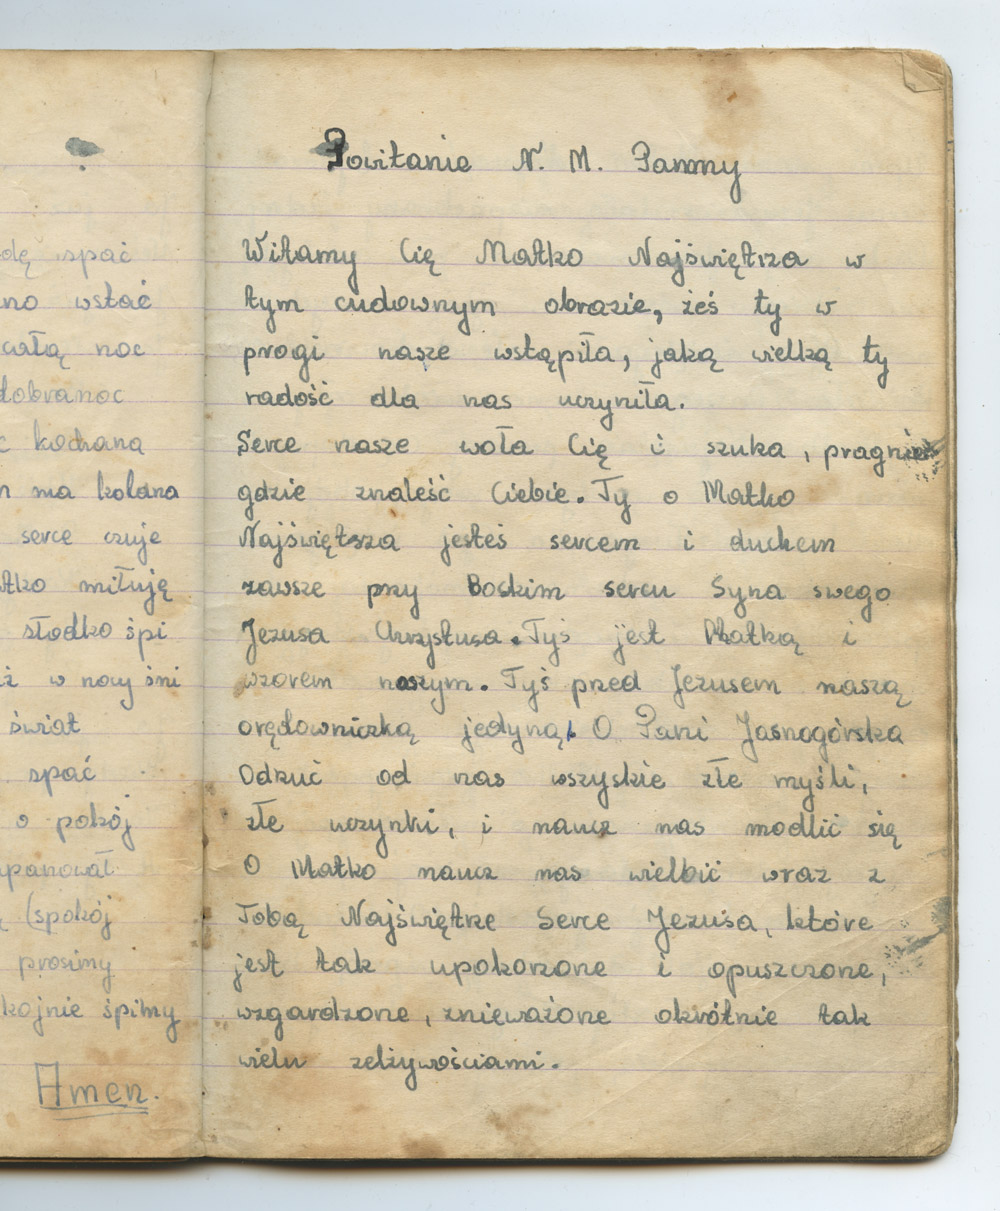 spać
wstać
całą noc
dobranoc
kochana
ma kolana
serce czuje
miłuję
słodko śpi
w nocy śni
świat
spać
o pokój
(spokój
prosimy
śpimy
Amen.
Powitanie N. M. Panny
Witamy Cię Matko Najświętrza w
tym cudownym obrazie, żeś ty w
progi nasze wstąpiła, jaką wielką ty
radość dla nas uczyniła.
Serce nasze woła Cię i szuka, pragnie
gdzie znaleść Ciebie. Ty o Matko
Najświętsza jesteś sercem i duchem
zawsze przy Boskim sercu Syna swego
Jezusa Chrzystusa. Tyś jest Matką i
wzorem naszym. Tyś przed Jezusem naszą
orędowniczką jedyną. O Pani Jasnogórska
Odzuć od nas wszyskie złe myśli,
złe uczynki, i naucz nas modlić się
O Matko naucz nas wielbić wraz z
Tobą Najświętrze Serce Jezusa, które
jest tak upokorzone i opuszczone,
wzgardzone, znieważone okrótnie tak
wielu zelżywościami.